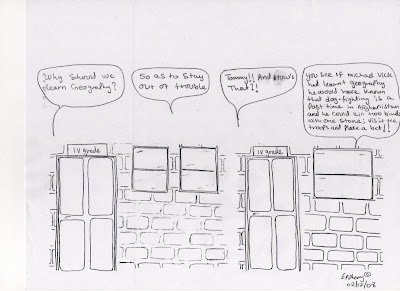 Why Should we
learn Geography?
So as to Stay
out of trouble
Tommy!! And How's
That!!
You see if michael Vick
had learnt geography
he would have known
that dog-fighting is a
Past time in Afghanistan
and he could kill two birds
with one Stone; visit the
troops and Place a bet!!
IV grade
IV grade
02/12/08